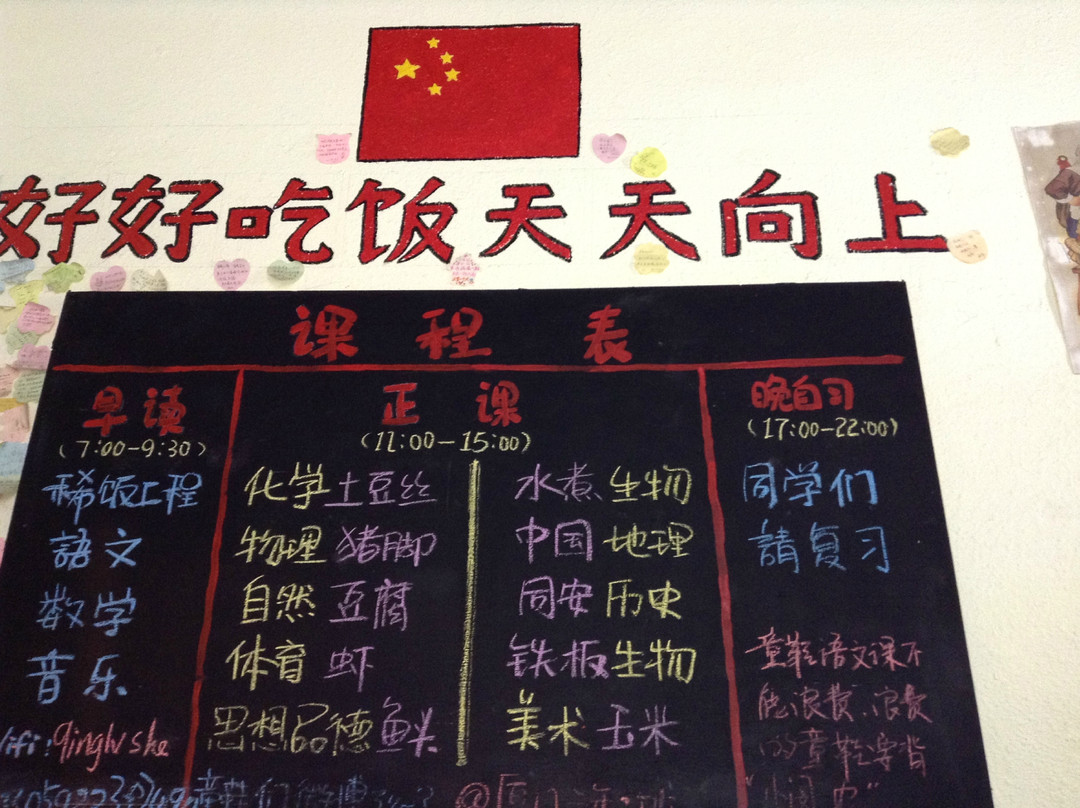 好好吃饭天天向上
课程表
早读
(7:00-9:30)
稀饭工程
語文
数学
音乐
wifi:qinglvshe
正课
(11:00-15:00)
化学土豆丝
物理猪脚
自然豆腐
体育虾
思想品德鱼头
水煮生物
中国地理
同安历史
铁板生物
美术玉米
晚自习
(17:00-22:00)
同学们
請复习
童鞋语文课不
能浪费,浪费
的童鞋要背